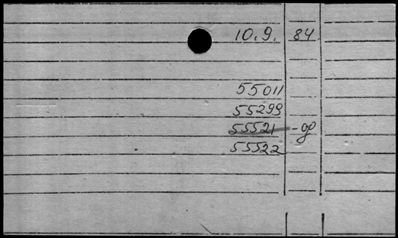 10.9. 84
55011
55299
55521
55522